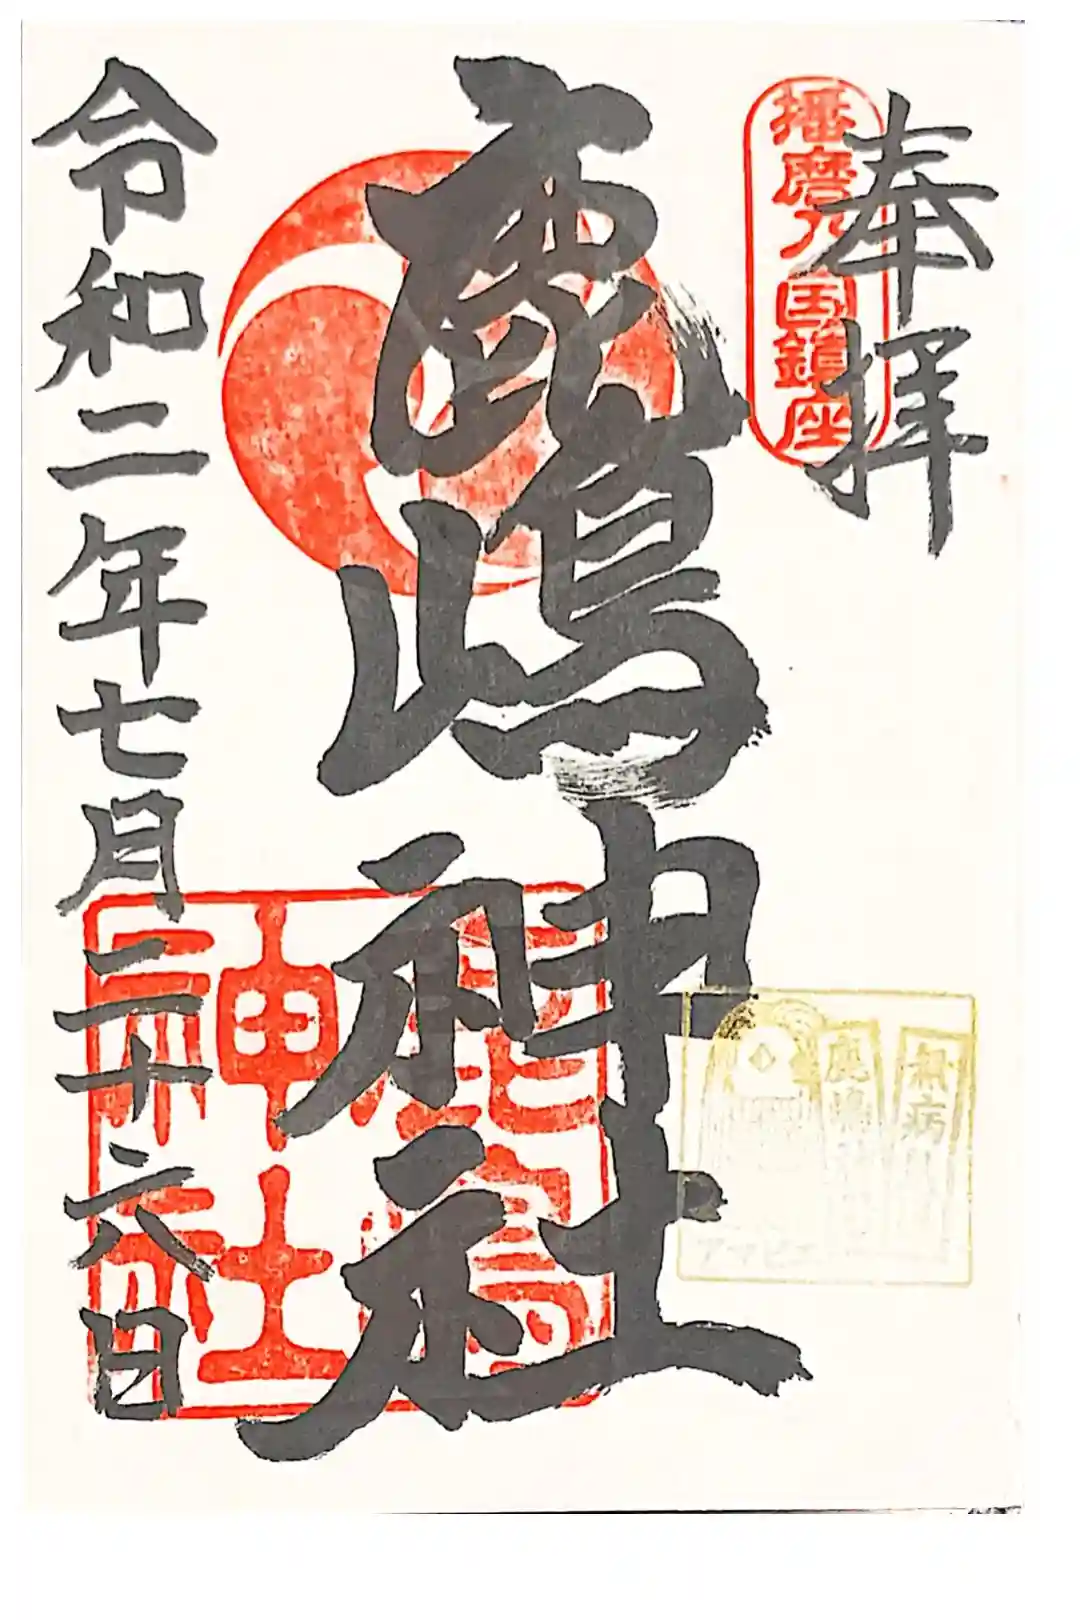 奉拝
播磨乃国鎮座
鹿嶋神社
鹿嶋神社
令和二年七月二十六日
無病
鹿嶋神社
アマビエ